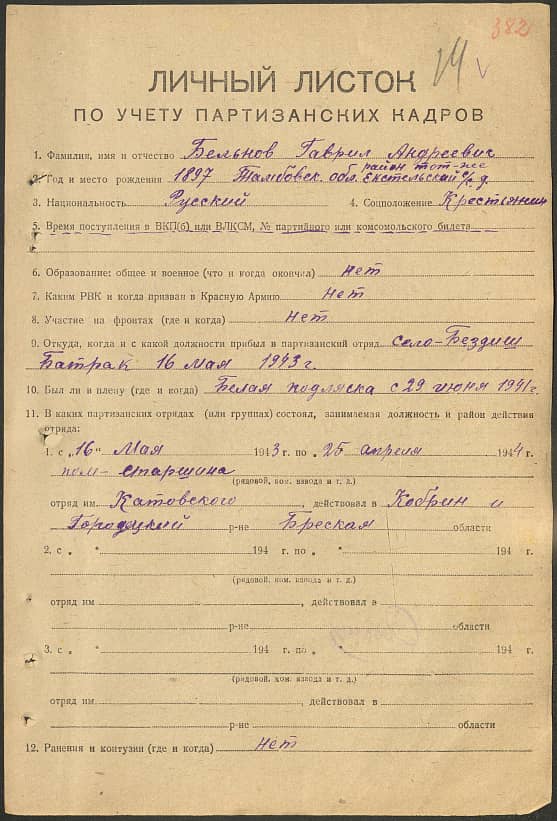 382
14 V
ЛИЧНЫЙ ЛИСТОК
ПО УЧЕТУ ПАРТИЗАНСКИХ КАДРОВ
1. Фамилия, имя и отчество Бельнов Гаврил Андреевич
район тот-же
2. Год и место рождения 1897 Тамбовск. обл. с/с. д.
3. Национальность Русский 4. Соцположение Крестьянин
5. Время поступления в ВКП(б) или ВЛКСМ, № партийного или комсомольского билета
6. Образование: общее и военное (что и когда окончил) нет
7. Каким РВК и когда призван в Красную Армию нет
8. Участие на фронтах (где и когда) нет
9. Откуда, когда и с какой должности прибыл в партизанский отряд село-Бездиш
Батрак 16 мая 1943 г.
10. Был ли в плену (где и когда) Белая подляска с 29 июня 1941 г.
11. В каких партизанских отрядах (или группах) состоял, занимаемая должность и район действия
отряда:
1. с „16“ Мая 1943 г. по „ 25 апреля 1944 г.
пом-старшина
(рядовой, ком. взвода и т. д.)
отряд им. Катовского , действовал в Кобрин и
Городецкий р-не Бреская области
2. с „ “ 194 г. по „ “ 194 г.
(рядовой, ком. взвода и т. д.)
отряд им , действовал в
р-не области
3. с „ “ 194 г. по „ “ 194 г.
(рядовой, ком. взвода и т. д.)
отряд им , действовал в
р-не области
12. Ранения и контузии (где и когда) нет